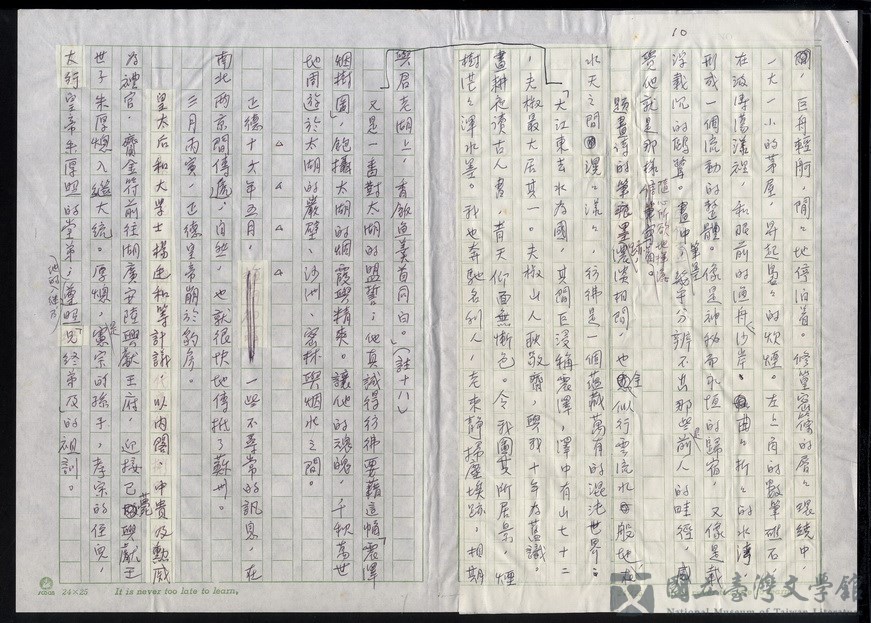 10
閣，巨舟輕舸，閒々地停泊着。修篁密樹的層々環繞中，
一大一小的茅屋，昇起晏々的炊煙。左上角的數筆磯石，
在波濤蕩漾裡，和眼前的漁舟、沙岸、曲々折々的水灣
，形成一個流動的整體。像是神秘而永恒的歸宿，又像是載
浮載沉的鷗鷺。畫中筆墨，幾乎分辨不出那些是前人的畦徑，感
覺他就是那樣隨心所欲地揮灑
題畫詩的筆跡墨濃淡相間，也全似行雲流水般地
水天之間漂々漾々，彷彿是一個蘊藏萬有的混沌世界：
「大江東去水為國，其間巨浸稱震澤，澤中有山七十二
，夫椒最大居其一。夫椒山人耿敬齋，與我十年為舊識。
晝耕夜讀古人書，青天仰面無慚色。令我圖其所居景，煙
樹茫々渾水墨。我也奔馳名利人，老來靜掃塵埃跡，相期
與君老湖上，香飯魚羹首同白。」（註十八）
又是一番對太湖的盟誓；他真誠得彷彿要藉這幅「震澤
烟樹圖」，飽攝太湖的烟霞與精爽。讓他的魂魄，千秋萬世
地周遊於太湖的巖壁、沙洲、密林與烟水之間。
△ △ △ △
正德十六年五月，一些不尋常的訊息，在
南北兩京間傳遞，自然，也就很快地傳抵了蘇州。
三月丙寅，正德皇帝崩於豹房。
皇太后和大學士楊廷和等計議，以內閣、中貴及勳戚
為禮官，齎金符前往湖廣安陸興獻王府，迎接已薨興獻王
世子朱厚熜入繼大統。厚熜，是憲宗的孫子，孝宗的侄兒，
大行皇帝朱厚照的堂弟；他的入繼乃遵照「兄終弟及」的祖訓。
24×25
It is never too late to learn.
國立臺灣文學館
National Museum of Taiwan Literature